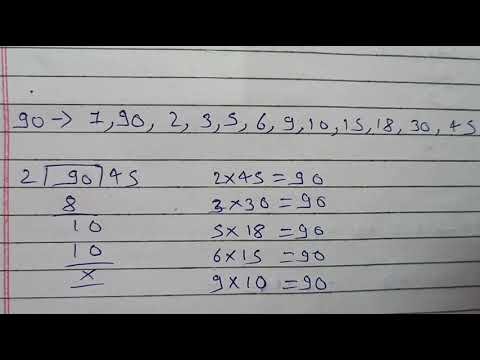 90 → 1, 90, 2, 3, 5, 6, 9, 10, 15, 18, 30, 45
2 ) 90 ( 45
8
10
10
x
2×45=90
3×30=90
5×18=90
6×15=90
9×10=90